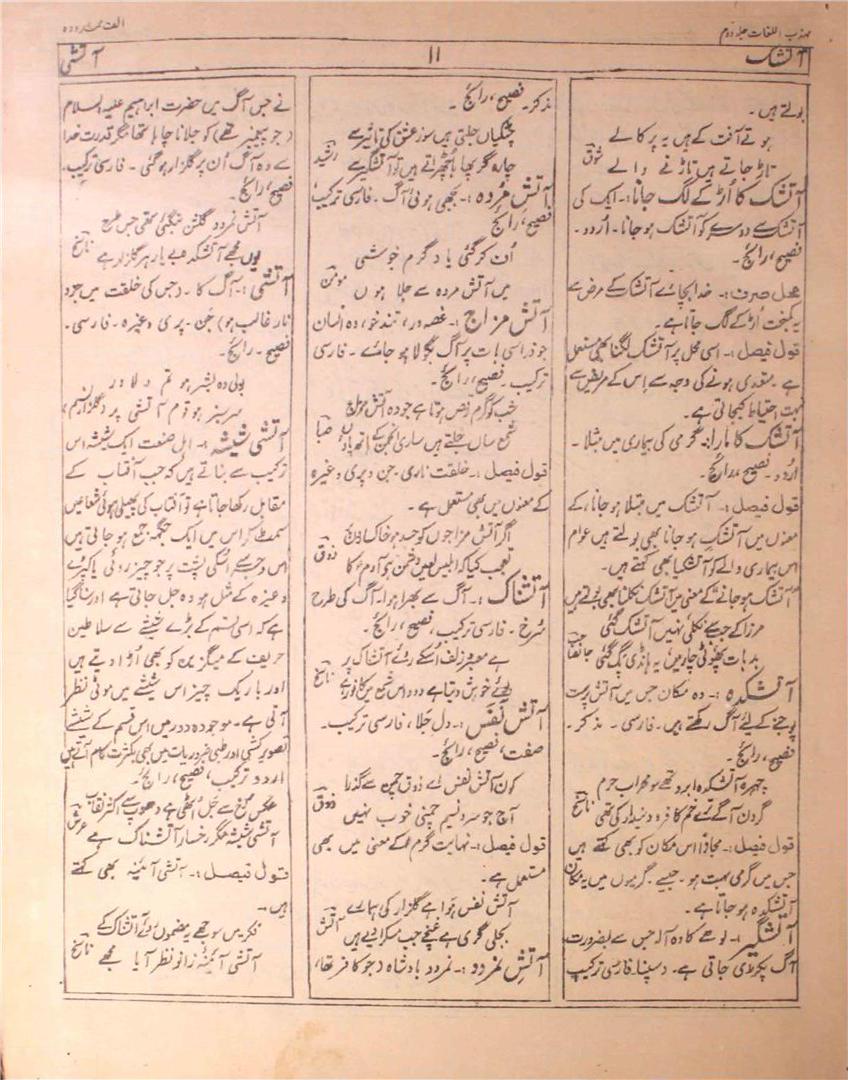 مہذب اللغات جلد دوم
الف ممدودہ
آتشک
۱۱
آتشی
بولتے ہیں۔
ہوتے آفت کے ہیں یہ پرکالے
تاڑ جاتے ہیں تاڑنے والے شوق
آتشک کا اُڑ کے لگ جانا:۔ ایک کی
آتشک سے دوسرے کو آتشک ہوجانا۔ اُردو۔
فصیح، رائج۔
محل صرف:۔ خدا بچائے آتشک کے مرض سے
یہ کمبخت اُڑ کے لگ جاتا ہے۔
قول فیصل:۔ اسی محل پر آتشک لگنا بھی مستعمل
ہے۔ متعدی ہونے کی وجہ سے اس کے مریض سے
بہت احتیاط کیجاتی ہے۔
آتشک کا مارا:۔ گرمی کی بیماری میں مبتلا۔
اُردو۔ فصیح، رائج۔
قول فیصل:۔ آتشک میں مبتلا ہوجانا، کے
معنوں میں آتشک ہوجانا بھی بولتے ہیں عوام
اس بیماری والے کو آتشکیا بھی کہتے ہیں۔
"آتشک ہوجانے" کے معنی میں آتشک نکلنا بھی بولتے ہیں
مرزا کے جسم سے نکلی نہیں آتشک گئی
بد ہات پھوٹی چار میں یہ ہانڈی پک گئی جانصاحب
آتشکدہ:۔ وہ مکان جس میں آتش پرست
پوجنے کے لیئے آگ رکھتے ہیں۔ فارسی۔ مذکر۔
فصیح، رائج۔
چہرہ آتشکدہ ابرو تھے سو محراب حرم
گردن آگے ترے خم کافر و دنیدار کی تھی ناسخ
قول فیصل:۔ مجازاً اس مکان کو بھی کہتے ہیں
جس میں گرمی بہت ہو۔ جیسے گرمیوں میں یہ مکان
آتشکدہ ہوجاتا ہے۔
آتشگیر:۔ لوہے کا وہ آلہ جس سے بضرورت
آگ پکڑی جاتی ہے۔ دسپنا۔ فارسی ترکیب
مذکر۔ فصیح، رائج۔
چٹکیاں جلتی ہیں سوز عشق کی تاثیر سے
چارہ گر پھاہا اُٹھاتے ہیں تو آتشگیر سے رشید
آتشِ مُردہ:۔ بجھی ہوئی آگ۔ فارسی ترکیب،
فصیح، رائج
اُن کر گئی یاد گرم جوشی
میں آتش مردہ سے جلا ہوں مومن
آتش مزاج:۔ غصہ ور، تند خو، وہ انسان
جو ذرا سی بات پر آگ بگولا ہو جائے۔ فارسی
ترکیب۔ فصیح، رائج۔
شب کو گرم رقص ہوتا ہے جو وہ آتش مزاج
شمع ساں جلتے ہیں ساری انجمن کے ہاتھ پاؤں صبا
قول فیصل:۔ خلقت ناری۔ جن و پری وغیرہ
کے معنوں میں بھی مستعمل ہے۔
اگر آتش مزاجوں کو حسد ہو خاکساروں سے
تعجب کیا کہ ابلیس لعیں دشمن ہی آدم کا ذوق
آتشناک:۔ آگ سے بھرا ہوا۔ آگ کی طرح
سُرخ۔ فارسی ترکیب، فصیح، رائج۔
ہے معنبر زلف اُسکے روئے آتشناک پر
کیا ہی خوش دیتا ہے دود اس شمع میں کافور سے ناسخ
آتش نَفَس:۔ دل جلا، فارسی ترکیب۔
صفت، فصیح، رائج۔
کون آتش نفس اے ذوق چمن سے گذرا
آج جو سرد نسیم چمنی خوب نہیں ذوق
قول فیصل:۔ نہایت گرم کے معنی میں بھی
مستعمل ہے۔
آتش نفس ہوا ہے گلزار کی ہمارے
بجلی گری ہے غنچے جب مسکرائے ہیں آتش
آتشِ نمرود:۔ نمرود بادشاہ (جو کافر تھا)
نے جس آگ میں حضرت ابراہیم علیہ السلام
(جو پیغمبر تھے) کو جلانا چاہا تھا مگر قدرت خدا
سے وہ آگ اُن پر گلزار ہوگئی۔ فارسی ترکیب۔
فصیح، رائج۔
آتش نمرود گلشن بنگئی تھی جس طرح
یوں مجھے آتشکدہ بے یار ہر گلزار ہے ناسخ
آتشی:۔ آگ کا۔ (جس کی خلقت میں جزو
نار غالب ہو) جن۔ پری وغیرہ۔ فارسی۔
فصیح۔ رائج۔
بولی وہ بشر ہو تم دلاور
سربز ہو قوم آتشی پر (گلزار نسیم)
آتشی شیشہ:۔ اہل صنعت ایک شیشہ اس
ترکیب سے بناتے ہیں کہ جب آفتاب کے
مقابل رکھا جاتا ہے تو آفتاب کی پھیلی ہوئی شعاعیں
سمٹ کر اس میں ایک جگہ جمع ہوجاتی ہیں
اس وجہ سے اُسکی پشت پر جو چیز روئی یا کپڑے
وغیرہ کے مثل ہو وہ جل جاتی ہے اور سنا گیا
ہے کہ اسی قسم کے بڑے شیشے سے سلاطین
حریف کے میگزین کو بھی اُڑا دیتے ہیں
اور باریک چیز اس شیشے میں موٹی نظر
آتی ہے۔ موجودہ دور میں اس قسم کے شیشے
تصویر کشی اور طبی ضروریات میں بھی بکثرت کام آتے ہیں
اردو ترکیب، فصیح، رائج۔
عکس رخ سے جل اُٹھی ہے دھوپ سے اکثر نقاب
آتشی شیشہ مگر رخسار آتشناک ہے عرش
قول فیصل:۔ آتشی آئینہ بھی کہتے
ہیں۔
فکر میں سوجھے یہ مضموں روئے آتشناک کے
آتشی آئینہ زانو نظر آیا مجھے ناسخ